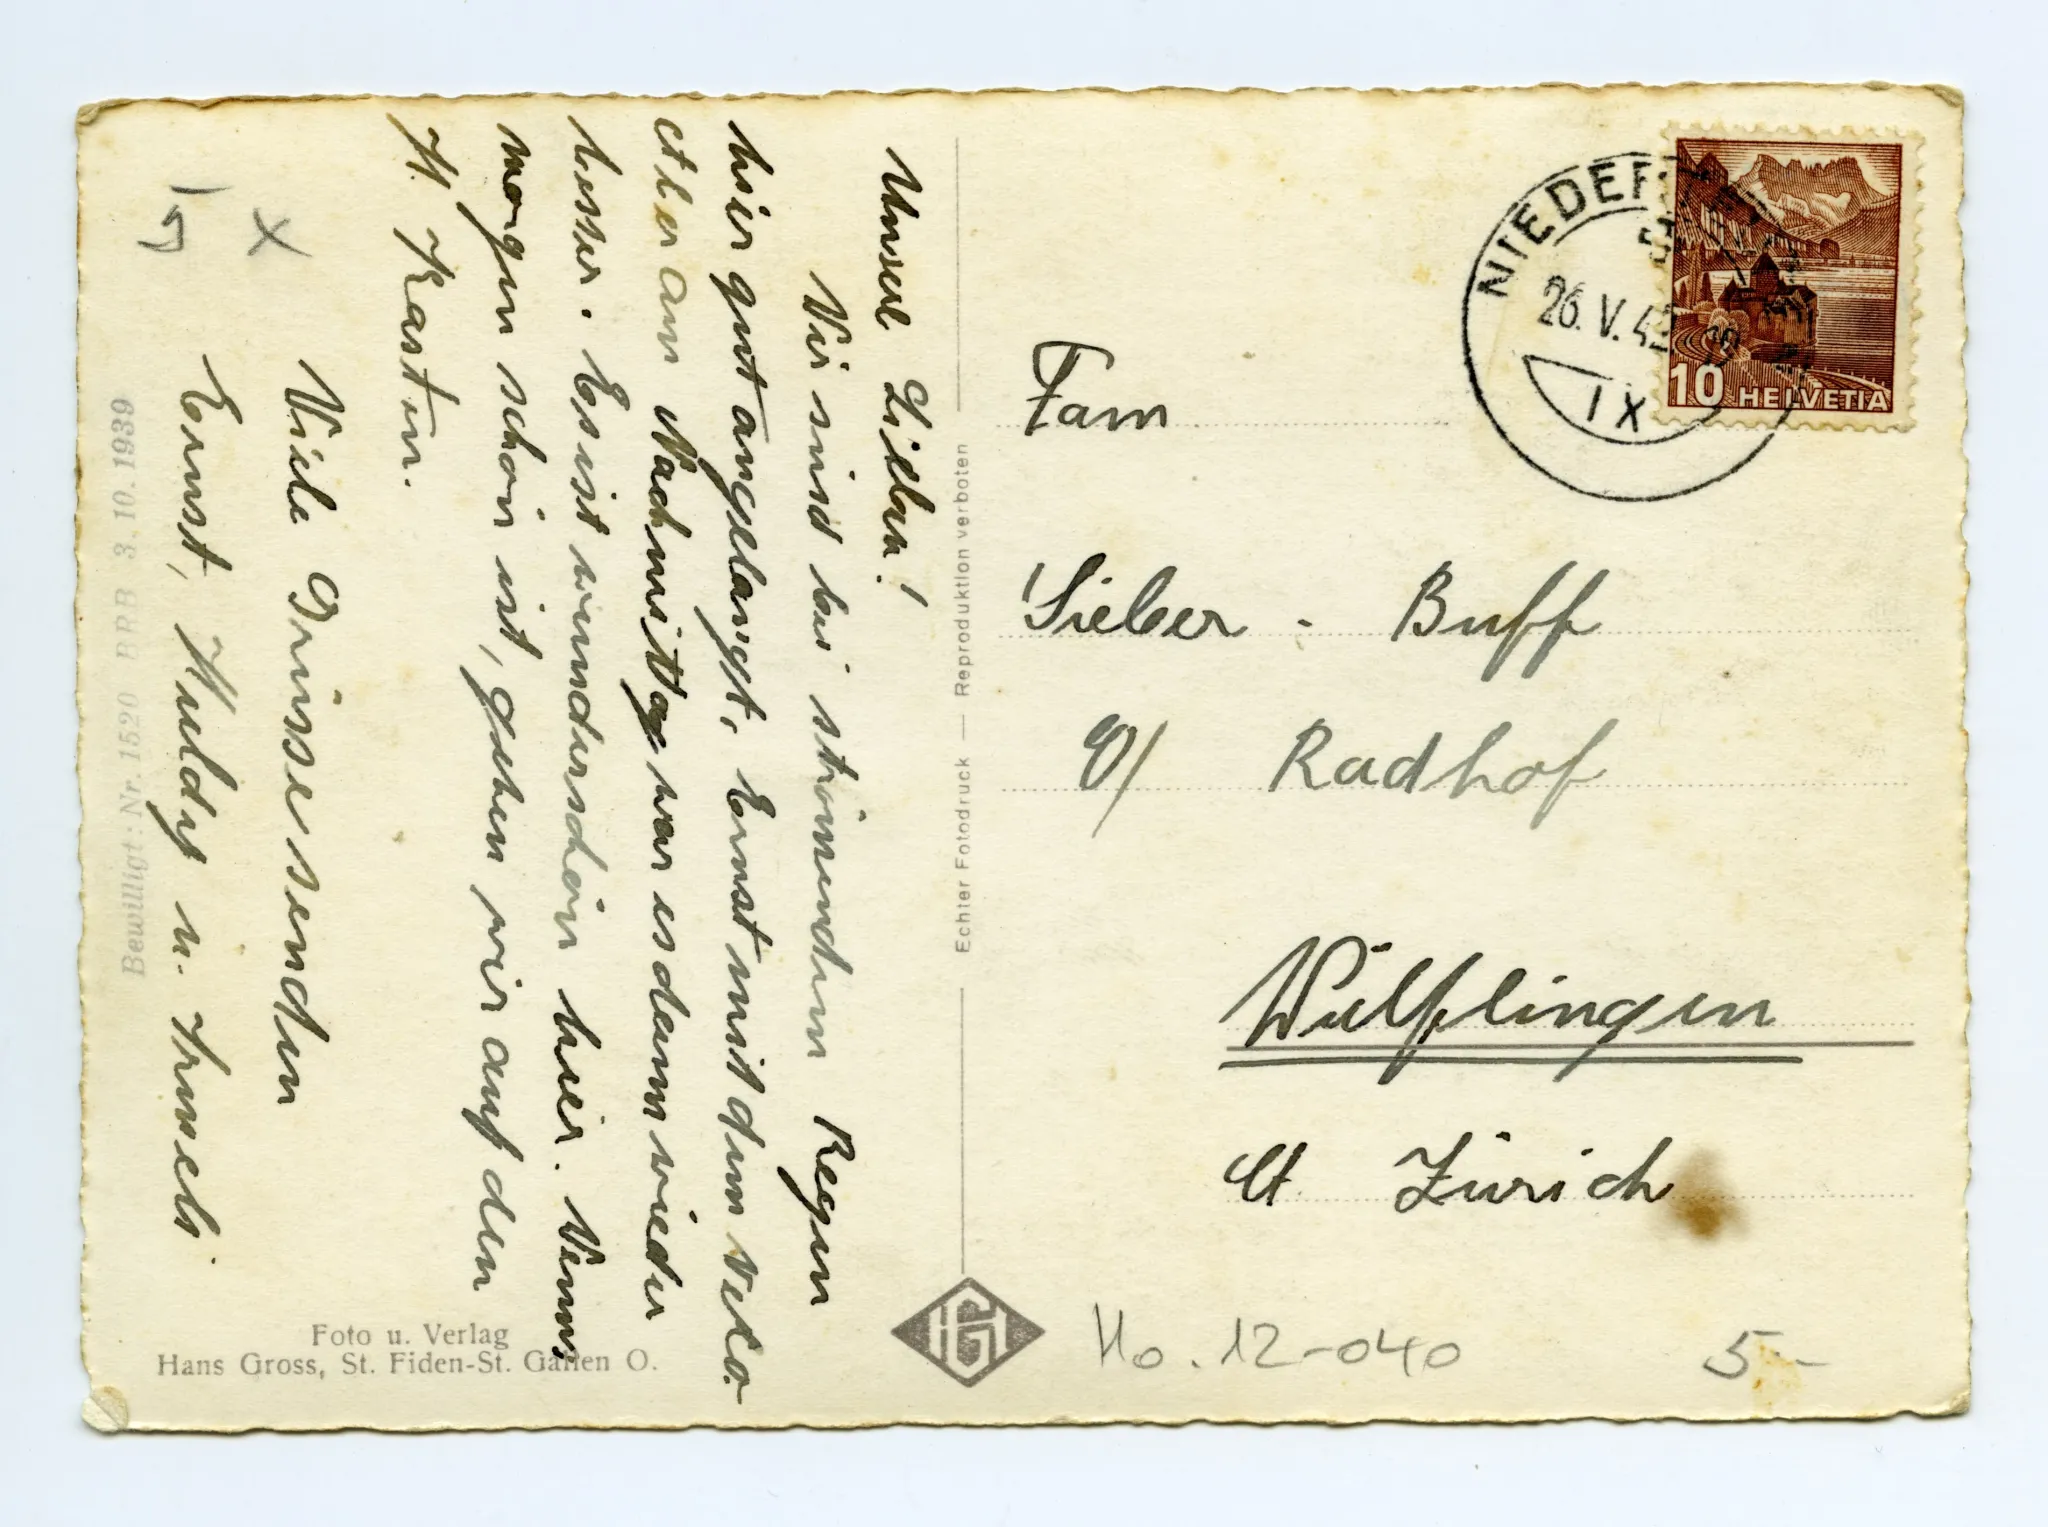 Unsere Lieben!
Wir sind bei strömendem Regen
hier gut angelangt, Ernst mit dem Velo.
Aber am Nachmittag war es dann wieder
besser. Es ist wunderschön hier. Wenn
morgen schön ist, gehen wir auf den
H. Kasten.
Viele Grüsse senden
Ernst, Huldy u. Irmeli
Bewilligt: Nr. 1520 BRB 3. 10. 1939
Foto u. Verlag
Hans Gross, St. Fiden-St. Gallen O.
Echter Fotodruck — Reproduktion verboten
HG
26. V. 42
IX
10 HELVETIA
Fam
Sieber - Buff
Radhof
Wülflingen
Ct. Zürich
Ho. 12-040
5.-
X